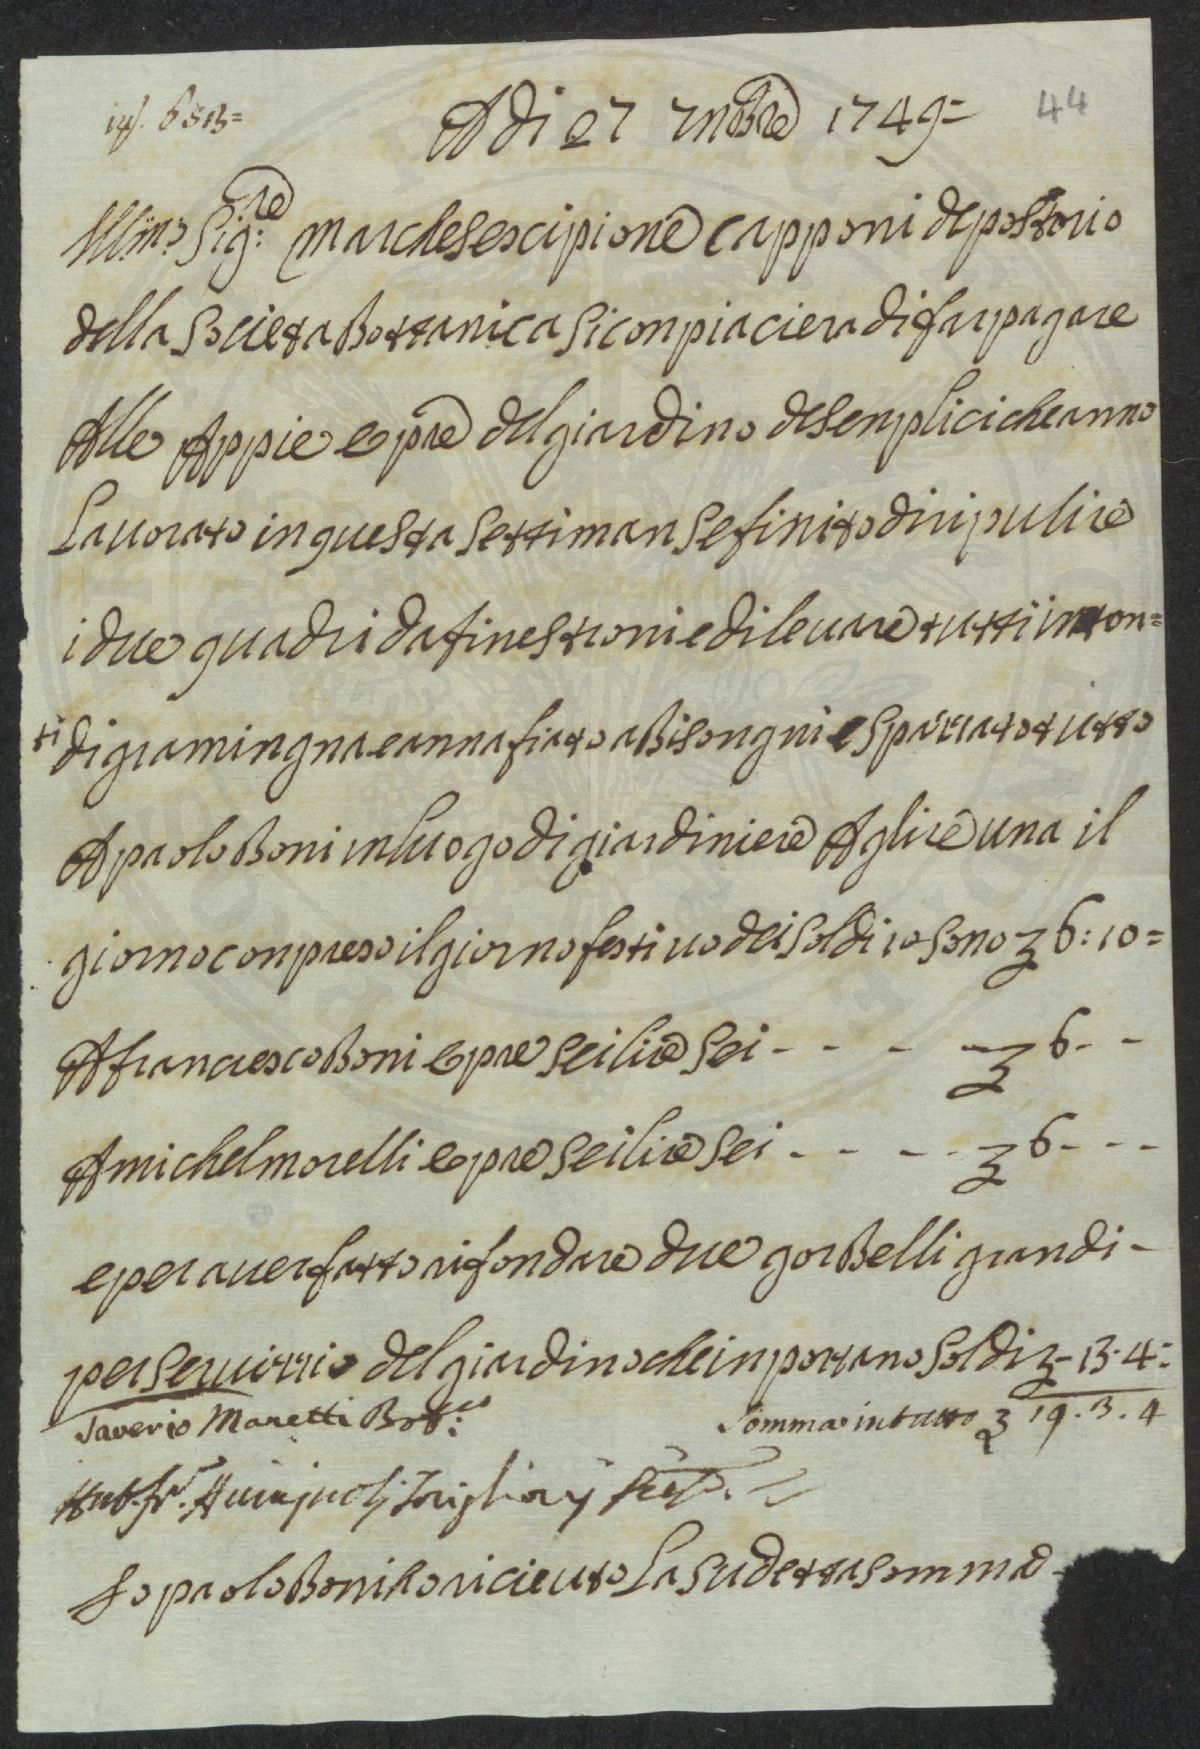 Adi 27 7mbre 1749= 44
Illmo: Sig:re marchese scipione capponi depostorio
della Societa Bottanica Si conpiaciera di far pagare
Alle Appie e opre del giardino de Senplici che anno
Lauorato in questa Settiman Se finito di ripulire
i due quadri da finestroni e di leuare tutti in ton=
ti di gramingna e annafiato a Bisongni e Sparrato tutto
A paolo Boni in luogo di giardiniere A glire una il
giorno conpreso il giorno festiuo dei Soldi 10 Sono 6:10=
A francresco Boni e opre Sei lire Sei - - - - 6 - -
A michel morelli e opre Sei lire Sei - - - - 6 - - -
e per auer fatto rifondare due gorBelli grandi -
per Seruitrio del giardino che inportano Soldi - 13-4=
Saverio Manetti Bot:co Somma in tutto 19.3.4
Io paolo Boni ho riceuto La Sudetta Somma -